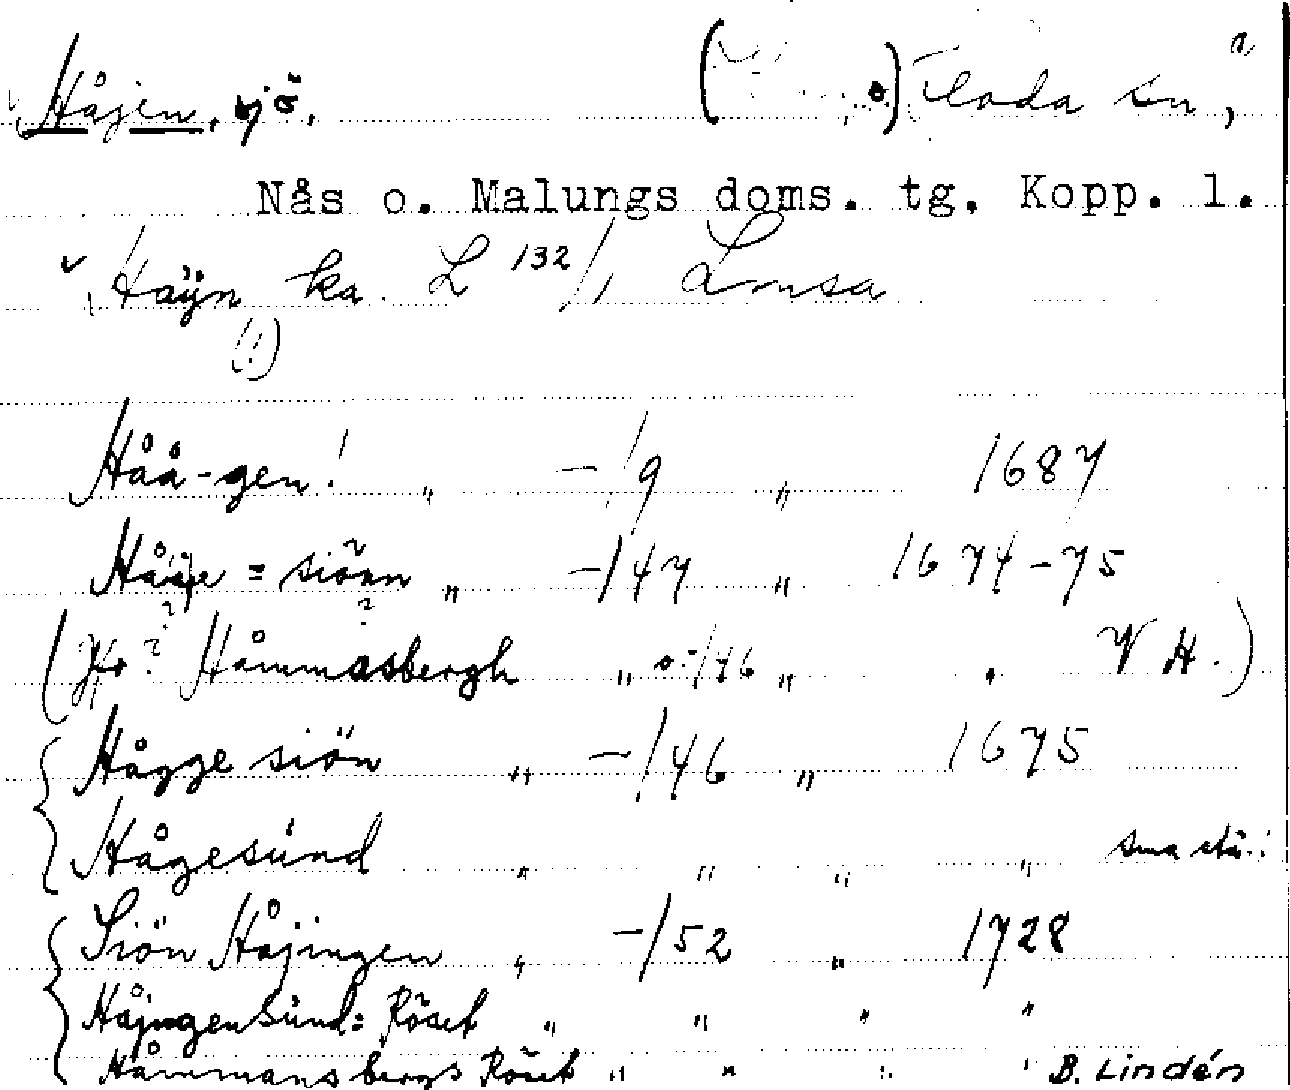 Håjen, sjö. ( o.) Floda sn,
Nås o. Malungs doms. tg. Kopp. l.
Haÿn ka. L 132/1 Lmsa
(!)
Håå-gen! " -/9 " 1687
= siönn " -/47 " 1674-75
? ?
(Jfr? Håmmasbergh " o -/46 " " V H.)
Hågge siön " -/46 " 1675
Hågesund " " " " sma stä.:
Siön Håjingen " -/52 " 1728
Håjngensund= Röset " " " "
Håmmansbergs Röset " " " " B. Lindén